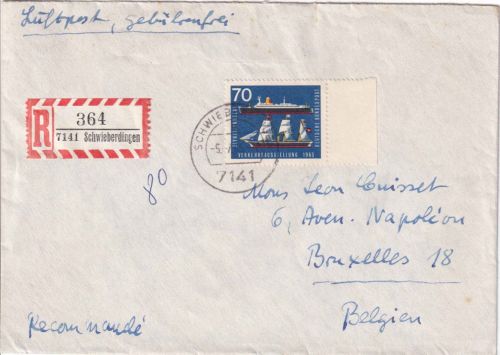 Luftpost, gebührenfrei
R
364
7141 Schwieberdingen
70
DEUTSCHE BUNDESPOST
VERKEHRSAUSSTELLUNG 1965
SCHWIE
-5.
7141
80
Mons Leon Cuisset
6, Aven. Napoléon
Bruxelles 18
Belgien
Recommandé